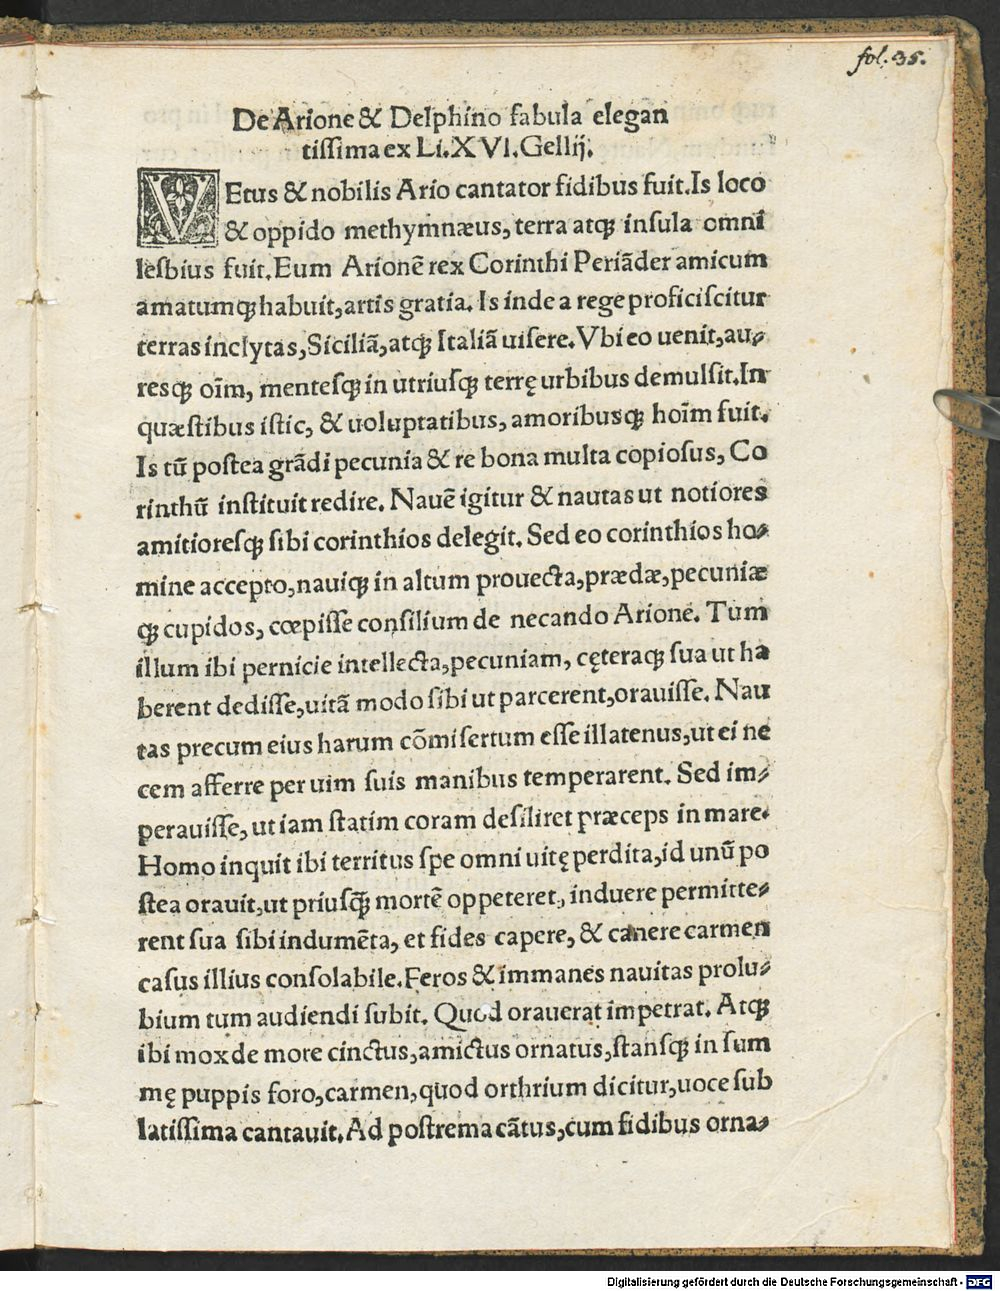 fol. 35.
De Arione & Delphino fabula elegan
tissima ex Li. XVI. Gellij.
VEtus & nobilis Ario cantator fidibus fuit. Is loco
& oppido methymnæus, terra atqꝫ insula omni
lesbius fuit. Eum Arionē rex Corinthi Periāder amicum
amatumqꝫ habuit, artis gratia. Is inde a rege proficiscitur
terras inclytas, Siciliā, atqꝫ Italiā uisere. Vbi eo uenit, au⸗
resqꝫ oīm, mentesqꝫ in utriusqꝫ terrę urbibus demulsit. In
quæstibus istic, & uoluptatibus, amoribusqꝫ hoīm fuit.
Is tū postea grādi pecunia & re bona multa copiosus, Co
rinthū instituit redire. Nauē igitur & nautas ut notiores
amitioresqꝫ sibi corinthios delegit. Sed eo corinthios ho⸗
mine accepto, nauiqꝫ in altum prouecta, prædæ, pecuniæ
qꝫ cupidos, cœpisse consilium de necando Arione. Tum
illum ibi pernicie intellecta, pecuniam, cęteraqꝫ sua ut ha
berent dedisse, uitā modo sibi ut parcerent, orauisse. Nau
tas precum eius harum cōmisertum esse illatenus, ut ei ne
cem afferre per uim suis manibus temperarent. Sed im⸗
perauisse, ut iam statim coram desiliret præceps in mare.
Homo inquit ibi territus spe omni uitę perdita, id unū po
stea orauit, ut priusqꝫ̄ mortē oppeteret, induere permitte⸗
rent sua sibi indumēta, et fides capere, & canere carmen
casus illius consolabile. Feros & immanes nauitas prolu⸗
bium tum audiendi subit. Quod orauerat impetrat. Atqꝫ
ibi mox de more cinctus, amictus ornatus, stansqꝫ in sum
mę puppis foro, carmen, quod orthrium dicitur, uoce sub
latissima cantauit. Ad postrema cātus, cum fidibus orna⸗
Digitalisierung gefördert durch die Deutsche Forschungsgemeinschaft - DFG